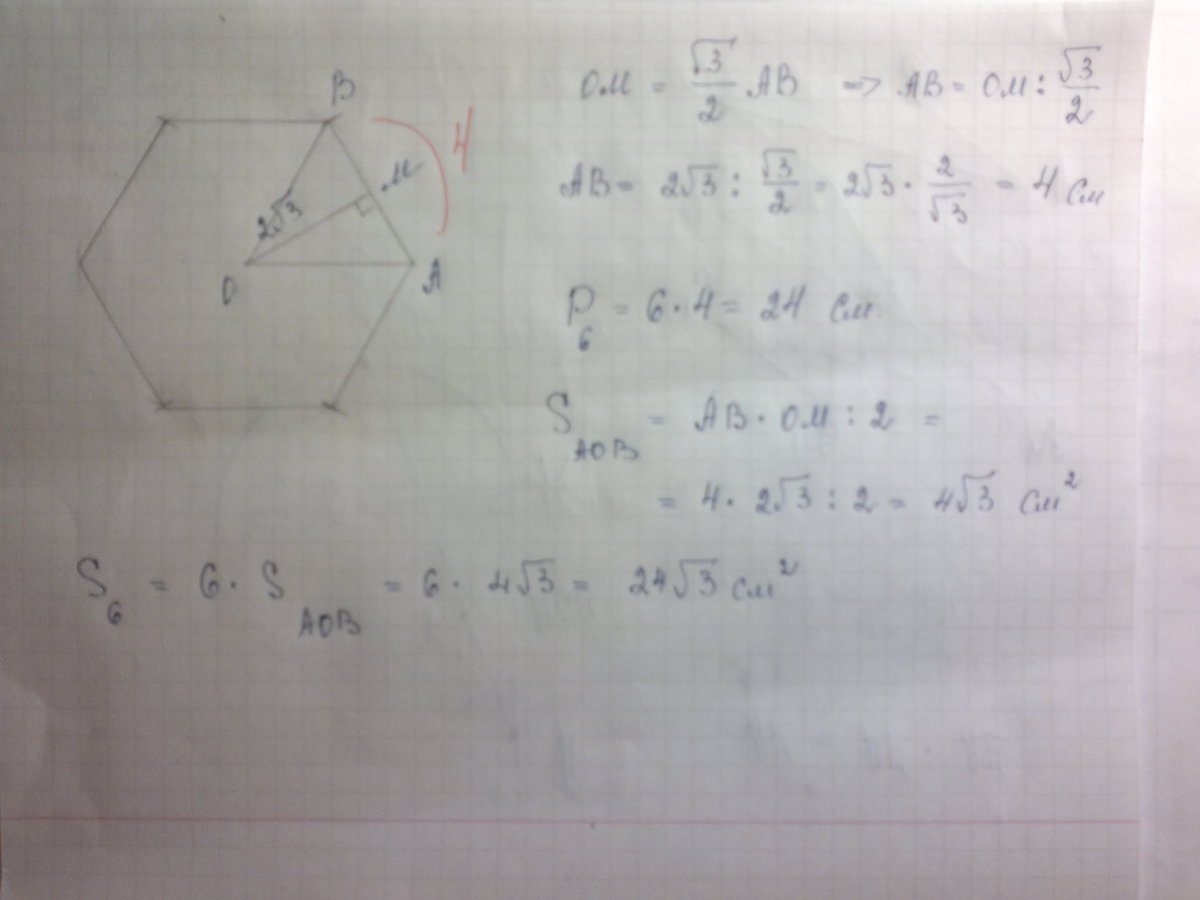 B
4
M
2√3
O
A
OM = √3/2 AB => AB = OM : √3/2
AB = 2√3 : √3/2 = 2√3 · 2/√3 = 4 см
P₆ = 6 · 4 = 24 см
S AOB = AB · OM : 2 =
= 4 · 2√3 : 2 = 4√3 см²
S₆ = 6 · S AOB = 6 · 4√3 = 24√3 см²